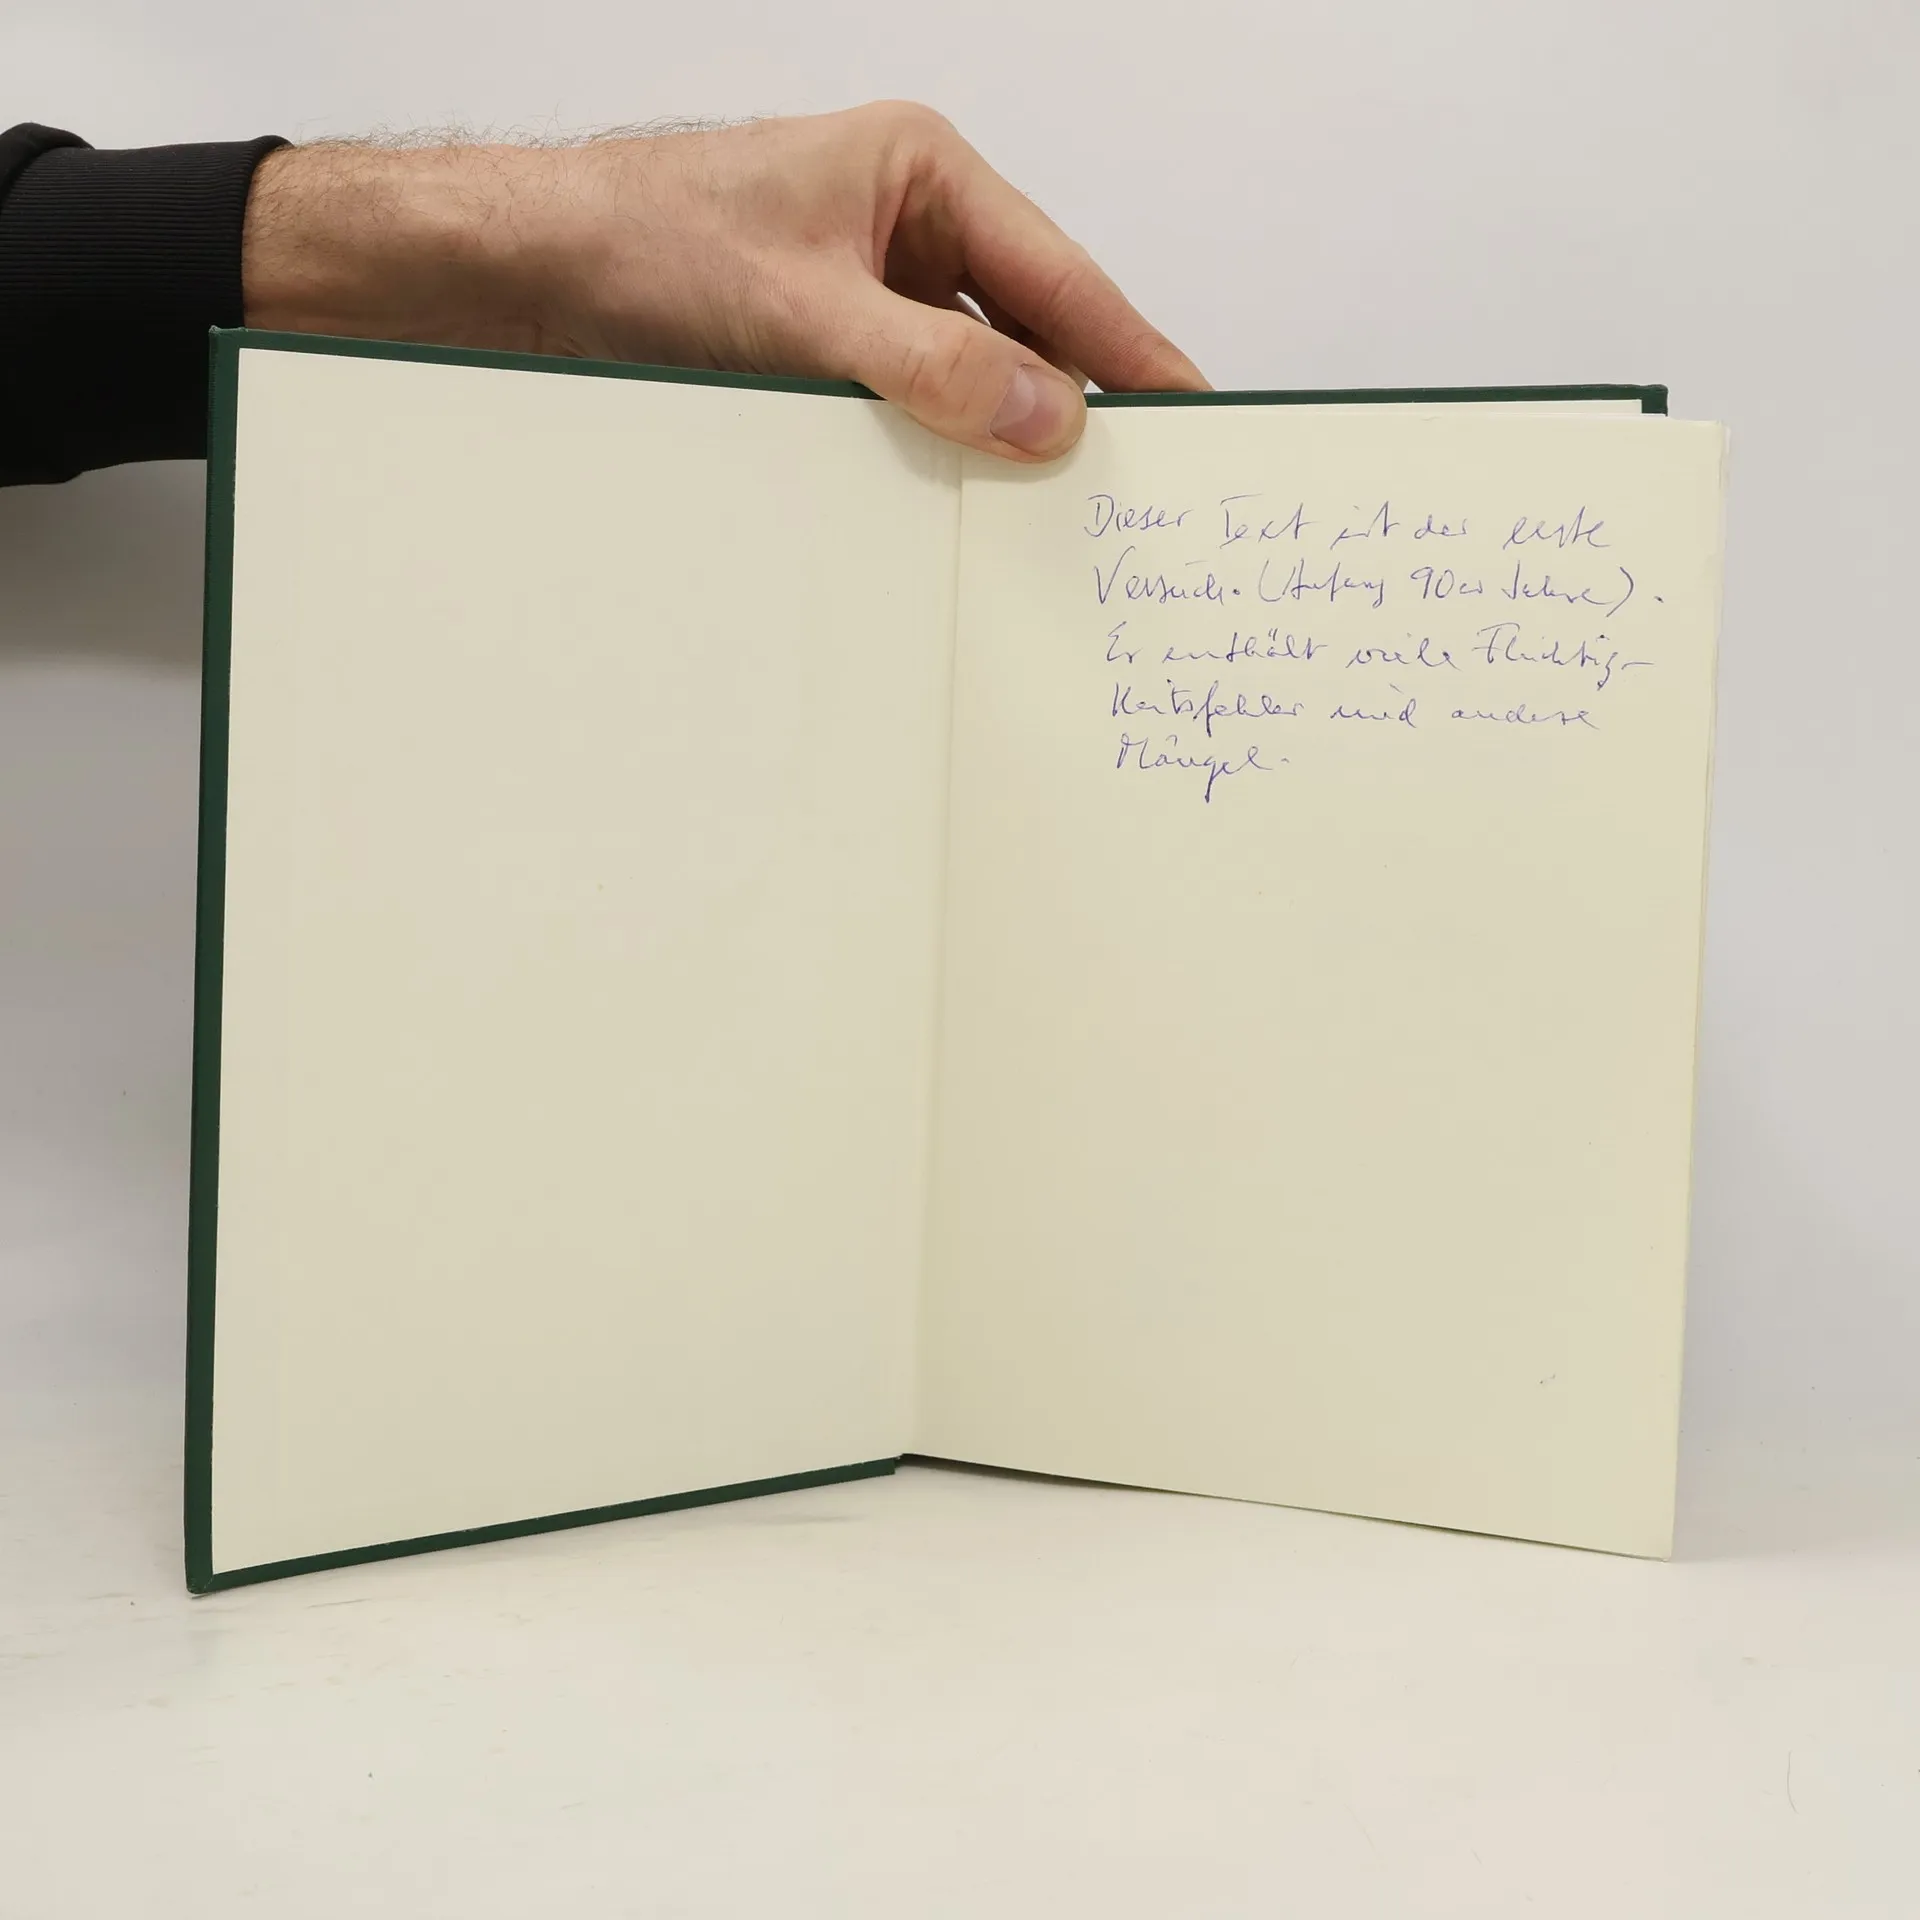 Dieser Text ist der erste
Versuch. (Anfang 90er Jahre).
Er enthält viele Flüchtig-
keitsfehler und andere
Mängel.